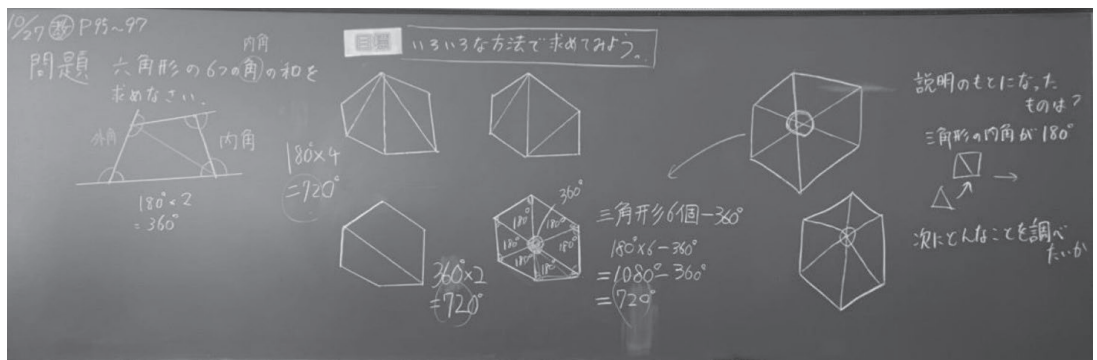 10/27 教 P95~97
問題 六角形の6つの角の和を
内角
求めなさい。
外角
内角
180°×2
=360°
目標 いろいろな方法で求めてみよう。
180°×4
=720°
360°×2
=720°
360°
180°
180°
180°
180°
180°
180°
三角形6個-360°
180°×6-360°
=1080°-360°
=720°
説明のもとになった
ものは?
三角形の内角が180°
次にどんなことを調べ
たいか